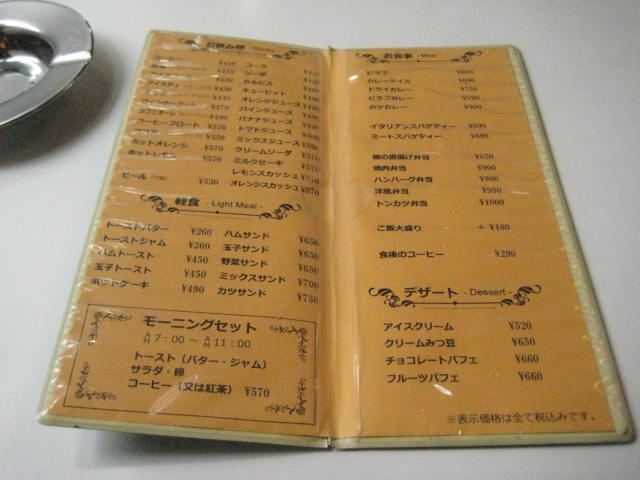 お飲み物 - Drinks -
コーラ
ソーダ
カルピス
キューピット
オレンジジュース
パインジュース
バナナジュース
トマトジュース
ミックスジュース
クリームソーダ
ミルクセーキ
レモンスカッシュ
オレンジスカッシュ
コーヒーフロート ¥570
ホットオレンジ
ホットレモン
ビール ¥530
軽食 - Light Meal -
トーストバター ¥260 ハムサンド ¥650
トーストジャム ¥260 玉子サンド ¥650
ハムトースト ¥450 野菜サンド ¥650
玉子トースト ¥450 ミックスサンド ¥700
ホットケーキ ¥490 カツサンド ¥750
モーニングセット
AM 7:00 ～ AM 11:00
トースト（バター・ジャム）
サラダ・卵
コーヒー（又は紅茶） ¥570
お食事 - Meal -
ピラフ ¥690
カレーライス ¥690
ドライカレー ¥750
ピラフカレー ¥790
カツカレー ¥900
イタリアンスパゲティー ¥690
ミートスパゲティー ¥690
鶏の唐揚げ弁当 ¥850
焼肉弁当 ¥900
ハンバーグ弁当 ¥900
洋風弁当 ¥950
トンカツ弁当 ¥1000
ご飯大盛り + ¥180
食後のコーヒー ¥290
デザート - Dessert -
アイスクリーム ¥520
クリームみつ豆 ¥650
チョコレートパフェ ¥660
フルーツパフェ ¥660
※表示価格は全て税込みです。